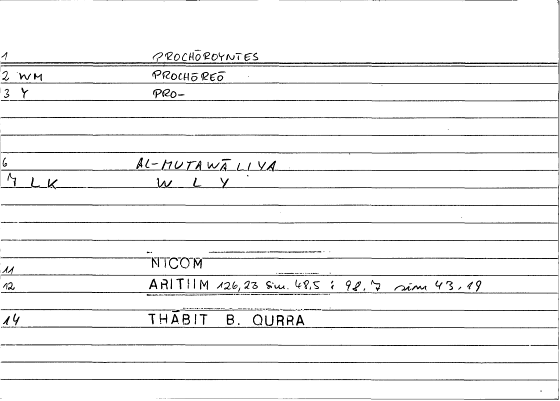 1 PROCHŌROYNTES
2 WM PROCHŌREŌ
3 Y PRO-
6 AL-MUTAWĀLIYA
7 LK W L Y
11 NICOM
12 ARITIIM 126,23 Sim. 48,5 : 98.7 sim 43.19
14 THĀBIT B. QURRA